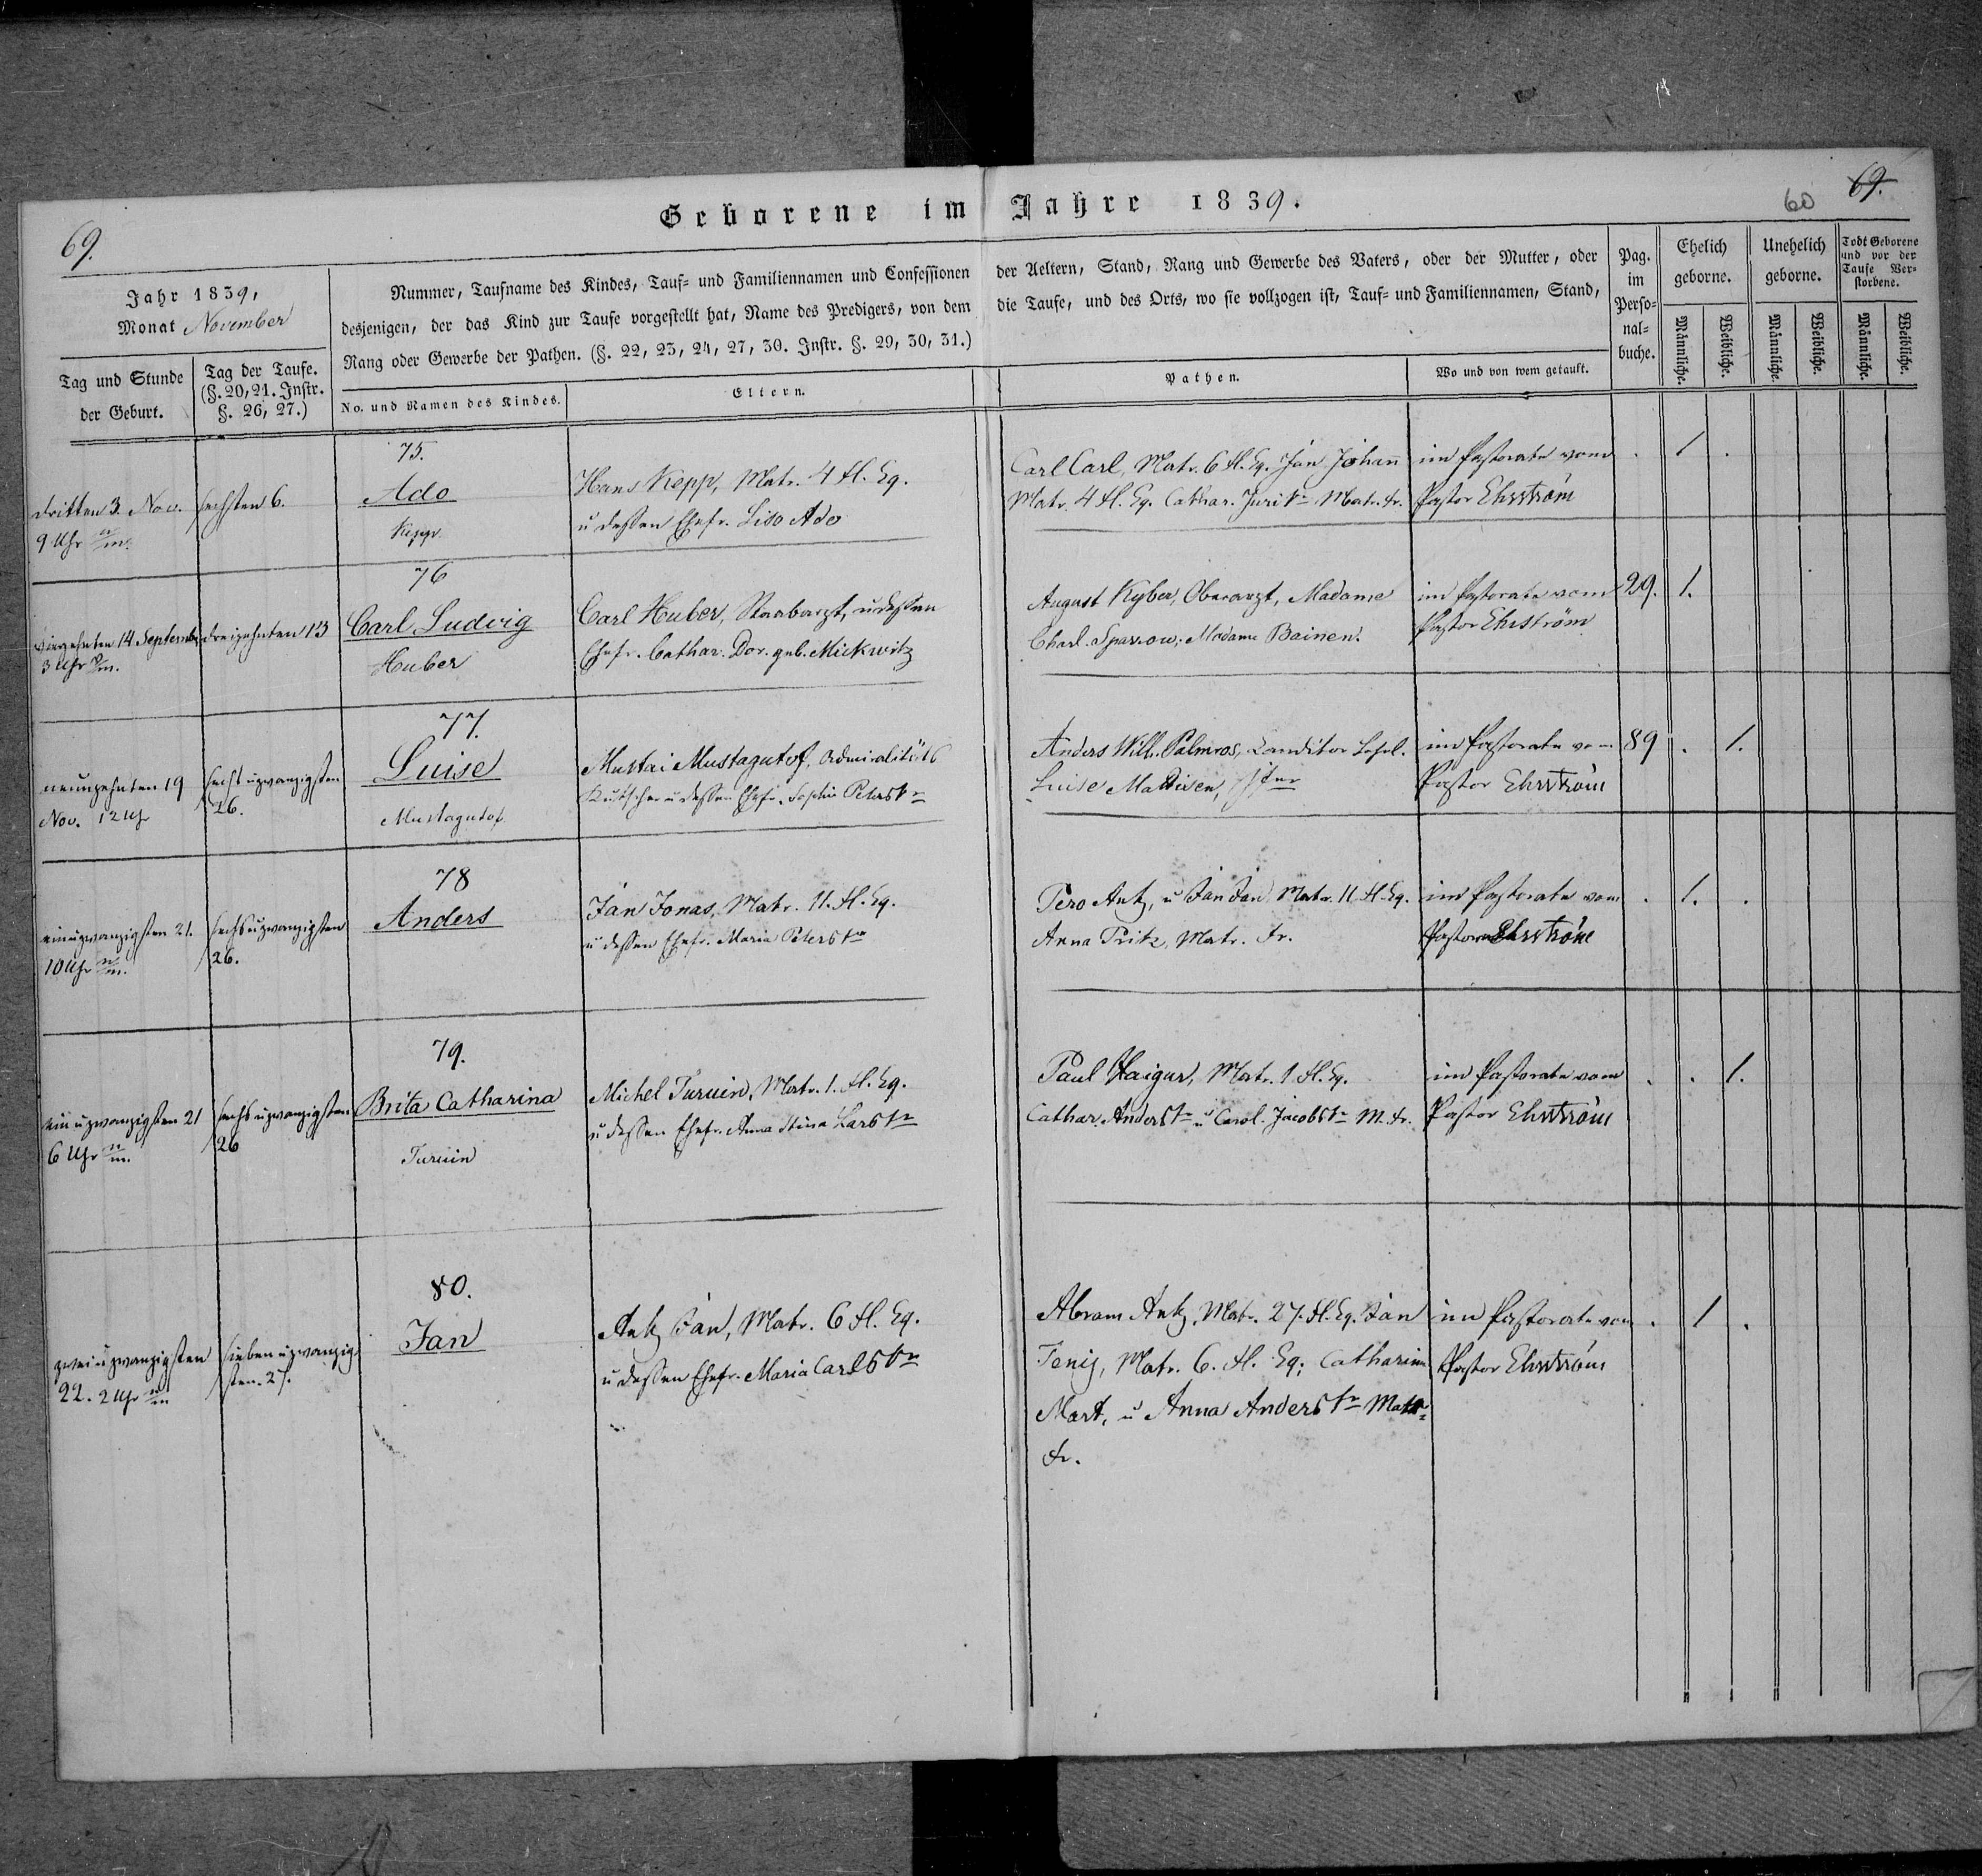 Geborene im Jahre 1839.
69.
60
69.
Jahr 1839,
Monat November
Tag und Stunde
der Geburt.
Tag der Taufe.
(§. 20, 21. Instr.
§. 26, 27.)
Nummer, Taufname des Kindes, Tauf- und Familiennamen und Confessionen der Aeltern, Stand, Rang und Gewerbe des Vaters, oder der Mutter, oder
desjenigen, der das Kind zur Taufe vorgestellt hat, Name des Predigers, von dem die Taufe, und des Orts, wo sie vollzogen ist, Tauf- und Familiennamen, Stand,
Rang oder Gewerbe der Pathen. (§. 22, 23, 24, 27, 30. Instr. §. 29, 30, 31.)
No. und Namen des Kindes.
Eltern.
Pathen.
Wo und von wem getauft.
Pag.
im
Perso-
nal-
buche.
Ehelich
geborne.
Unehelich
geborne.
Todt Geborene
und vor der
Taufe Ver-
storbene.
Männliche.
Weibliche.
Männliche.
Weibliche.
Männliche.
Weibliche.
dritten 3. Nov.
9 Uhr
sechsten 6.
75.
Ado
Kepp
Hans Kepp, Matr. 4 fl. Eq.
u dessen Ehefr. Liso Ado
Carl Carl, Matr. 6 fl. Eq. Jan Johann
Matr. 4 fl. Eq. Cathar. Juri Matr. fr.
im Pastorate vom
Pastor Ehrström
. 1 .
vierzehnten 14 September
3 Uhr
dreizehnten 13
76
Carl Ludvig
Huber
Carl Huber, Staabarzt, u dessen
Ehefr. Cathar. Dor. geb. Mickwitz
August Kyber, Oberarzt, Madame
Charl. Sparrow; Madame Bainen.
im Pastorate vom
Pastor Ehrström
29. 1.
neunzehnten 19
Nov. 12 Uhr
sechsuzwanzigsten
26.
77.
Luise
Mustagutof
Mustai Mustagutof, Admiralitäts
Kutscher u dessen Ehefr. Sophie Peters
Anders Will. Palmros, Conditor
Luise Mattisen,
im Pastorate vom
Pastor Ehrström
89 . 1.
einuzwanzigsten 21.
10 Uhr
sechsuzwanzigsten
26.
78
Anders
Jan Jonas, Matr. 11. fl. Eq.
u dessen Ehefr. Maria Peters
Pero Antz, u Jan Jan Matr. 11 fl. Eq.
Anna Pritz, Matr. fr.
im Pastorate vom
Pastor Ehrström
. 1. .
einuzwanzigsten 21
6 Uhr
sechsuzwanzigsten
26
79.
Brita Catharina
Turuin
Michel Turuin, Matr. 1. fl. Eq.
u dessen Ehefr. Anna Stina Lars
Paul Haigur, Matr. 1 fl. Eq.
Cathar. Anders u Carol. Jacobs M. fr.
im Pastorate vom
Pastor Ehrström
. . 1.
zweiuzwanzigsten
22. 2 Uhr
siebenuzwanzig-
sten. 27.
80.
Jan
Antz Jan, Matr. 6 fl. Eq.
u dessen Ehefr. Maria Carls
Abram Antz, Matr. 27. fl. Eq. Jan
Tenis, Matr. 6. fl. Eq; Catharina
Mart, u Anna Anders Matr-
fr.
im Pastorate vom
Pastor Ehrström
. 1 .